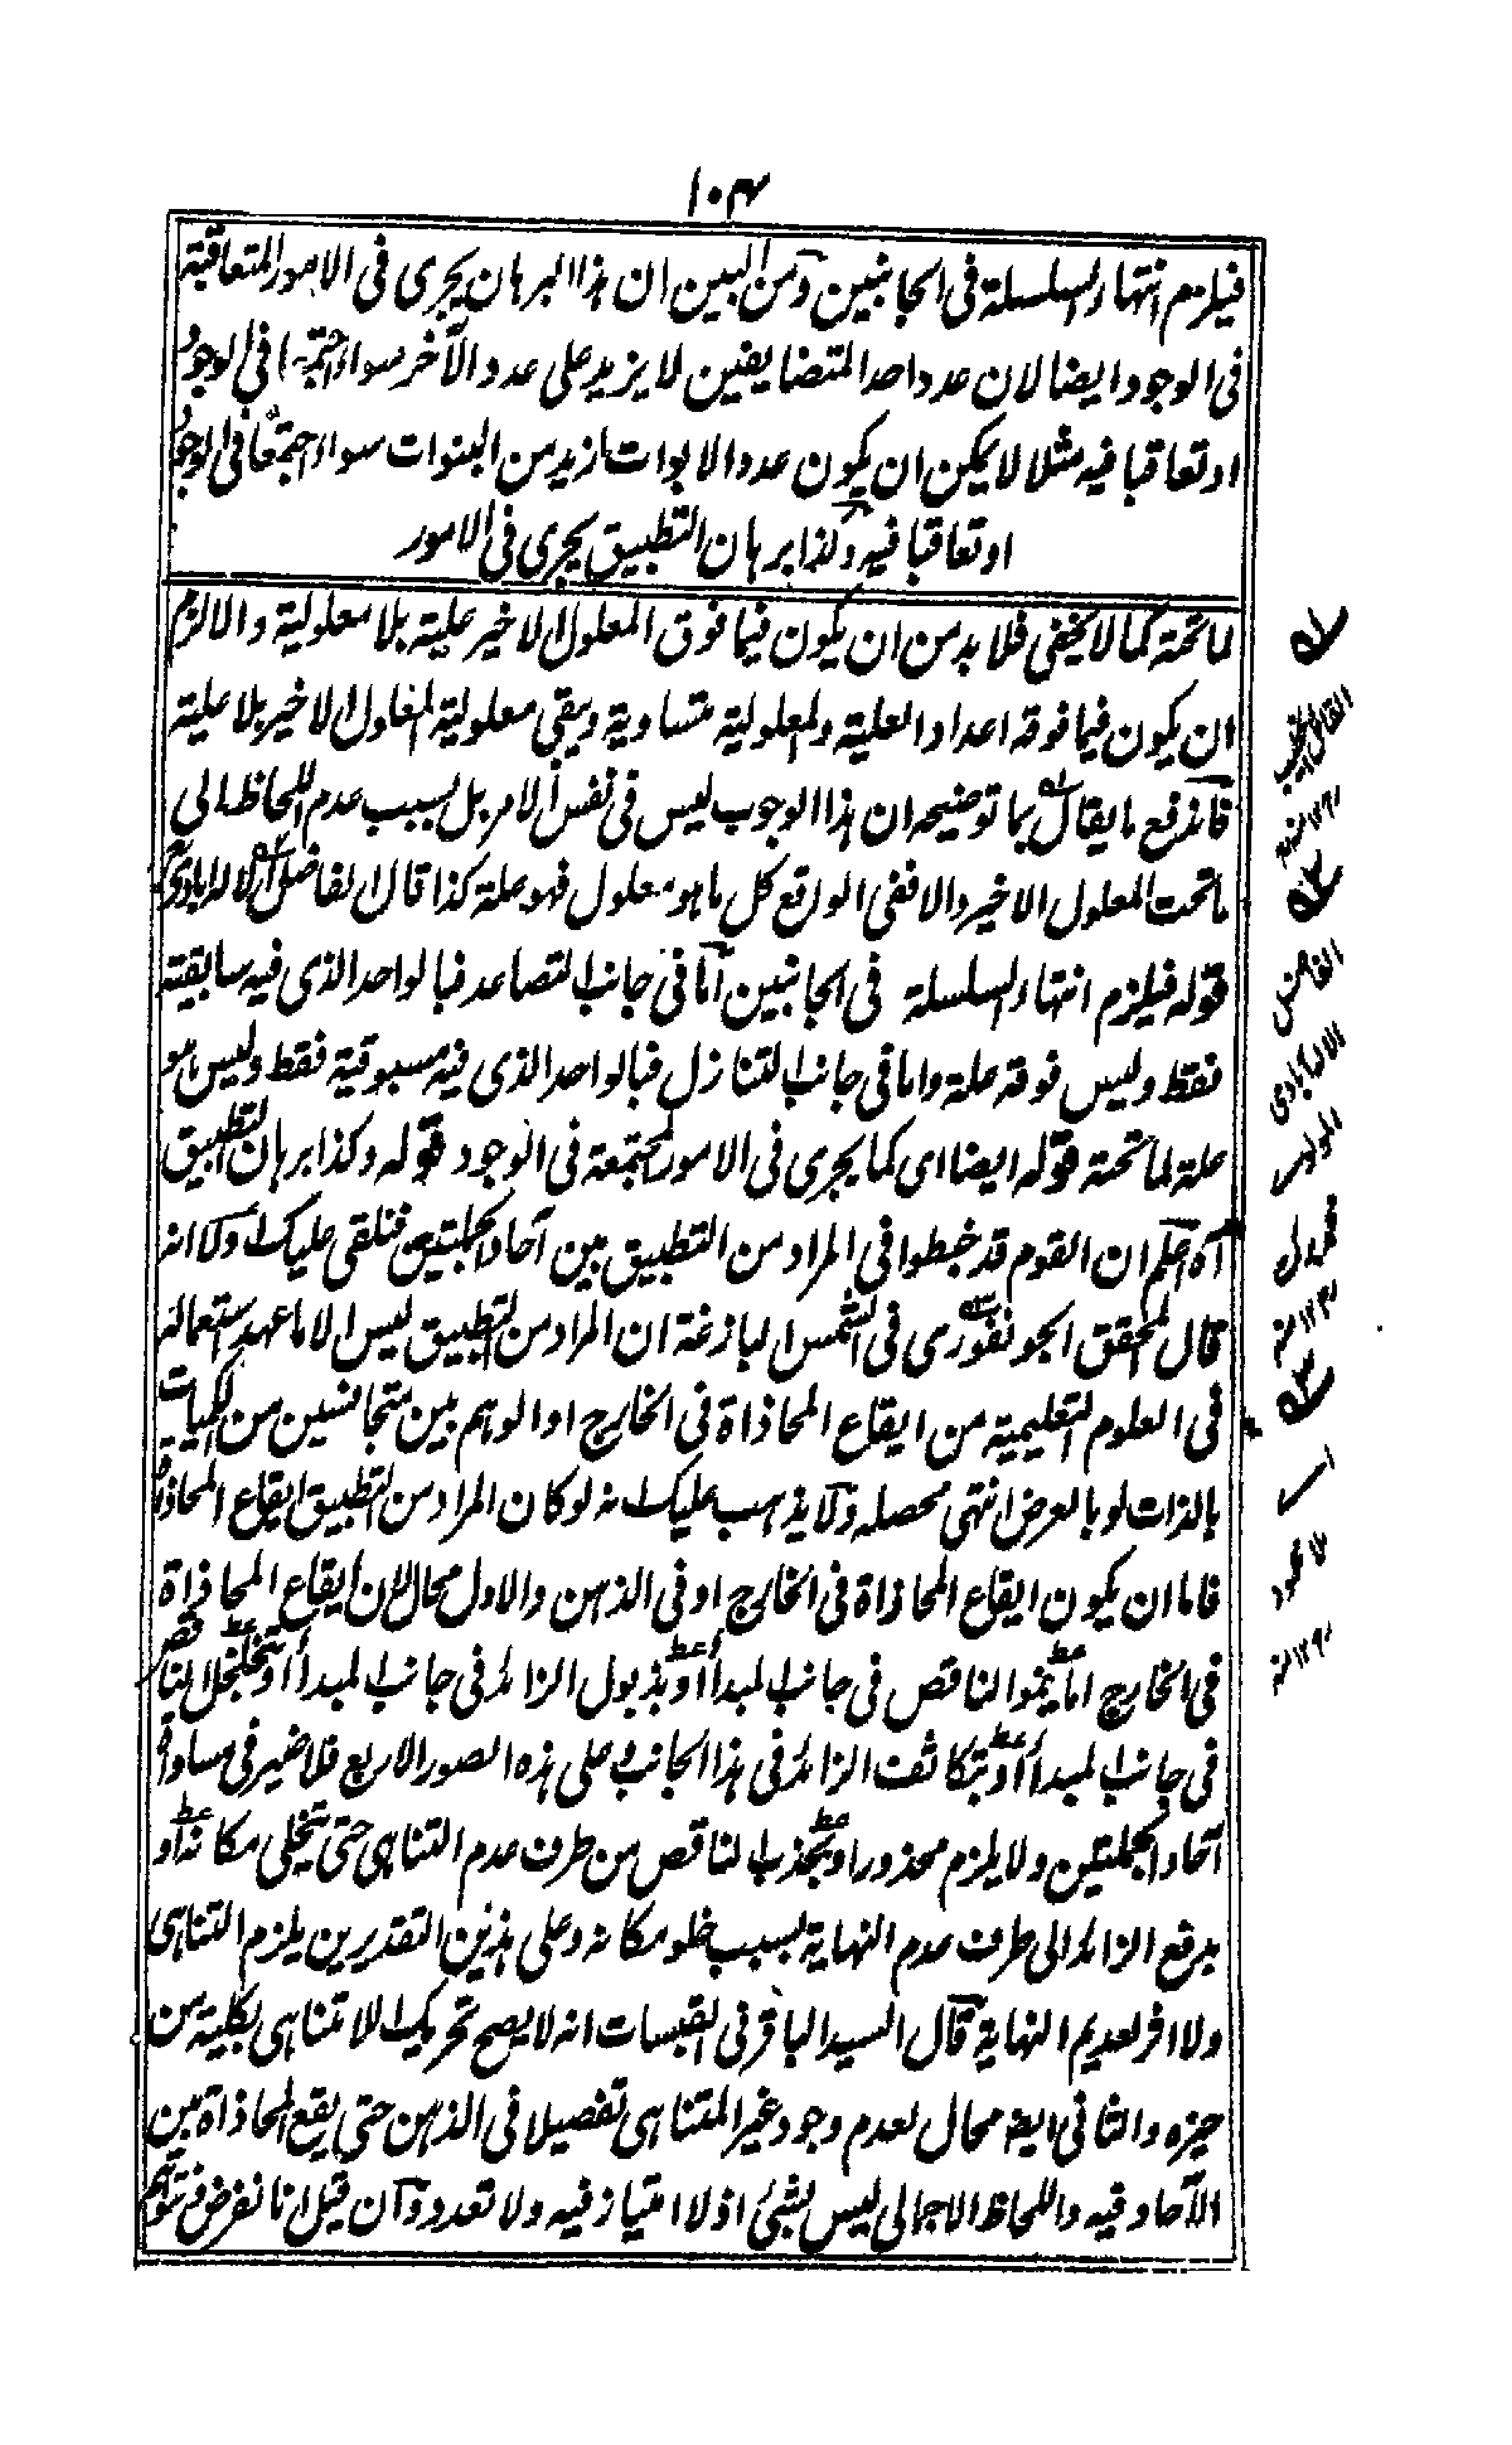 ١٠٤
فيلزم انتهاء السلسلة فى الجانبين ومن البين ان هذا البرهان يجرى فى الامور المتعاقبة
فى الوجود ايضا لان عدد احد المتضايفين لا يزيد على عدد الآخر سواء اجتمعا فى الوجود
او تعاقبا فيه مثلا لا يمكن ان يكون عدد الابوات ازيد من البنوات سواء اجتمعا فى الوجود
او تعاقبا فيه وكذا برهان التطبيق يجرى فى الامور
لما تحته كما لا يخفى فلا بد من ان يكون فيما فوق المعلول الاخير علية بلا معلولية والا لزم
ان يكون فيما فوقه اعداد العلية والمعلولية متساوية ويبقى معلولية المعلول الاخير بلا علية
فاندفع ما يقال بما توضيحه ان هذا الوجوب ليس فى نفس الامر بل بسبب عدم اللحاظ الى
ما تحت المعلول الاخير والا ففى الواقع كل ما هو معلول فهو علة كذا قال الفاضل الاله ابادى
قوله فيلزم انتهاء السلسلة فى الجانبين اما فى جانب التصاعد فبالواحد الذى فيه سابقية
فقط وليس فوقه علة واما فى جانب التنازل فبالواحد الذى فيه مسبوقية فقط وليس هو
علة لما تحته قوله ايضا اى كما يجرى فى الامور المجتمعة فى الوجود قوله وكذا برهان التطبيق
آه اعلم ان القوم قد خبطوا فى المراد من التطبيق بين آحاد الجملتين فنلقى عليك اولا انه
قال المحقق الجونفورى فى الشمس البازغة ان المراد من التطبيق ليس الا ما عهد استعماله
فى العلوم التعليمية من ايقاع المحاذاة فى الخارج او الوهم بين متجانسين من الكميات
بالذات او بالعرض انتهى محصله ولا يذهب عليك انه لو كان المراد من التطبيق ايقاع المحاذاة
فاما ان يكون ايقاع المحاذاة فى الخارج او فى الذهن والاول محال لان ايقاع المحاذاة
فى الخارج اما بنمو الناقص فى جانب المبدأ او بذبول الزائد فى جانب المبدأ او بتخلخل الناقص
فى جانب المبدأ او بتكاثف الزائد فى هذا الجانب وعلى هذه الصور الاربع فلا ضير فى مساواة
آحاد الجملتين ولا يلزم محذور او بجذب الناقص من طرف عدم التناهى حتى يتخلى مكانه او
بدفع الزائد الى طرف عدم النهاية بسبب خلو مكانه وعلى هذين التقديرين يلزم التناهى
ولا افر لعديم النهاية قال السيد الباقر فى القبسات انه لا يصح تحريك اللا متناهى بكلية من
حيزه والثانى ايضا محال لعدم وجود غير المتناهى تفصيلا فى الذهن حتى يقع المحاذاة بين
الآحاد فيه واللحاظ الاجمالى ليس بشئ اذ لا امتياز فيه ولا تعدد وان قيل انا نفرض
القائل
١٢ منه
الفاضل
الاله ابادى
١٢ منه
ملا محمود
١٢ منه